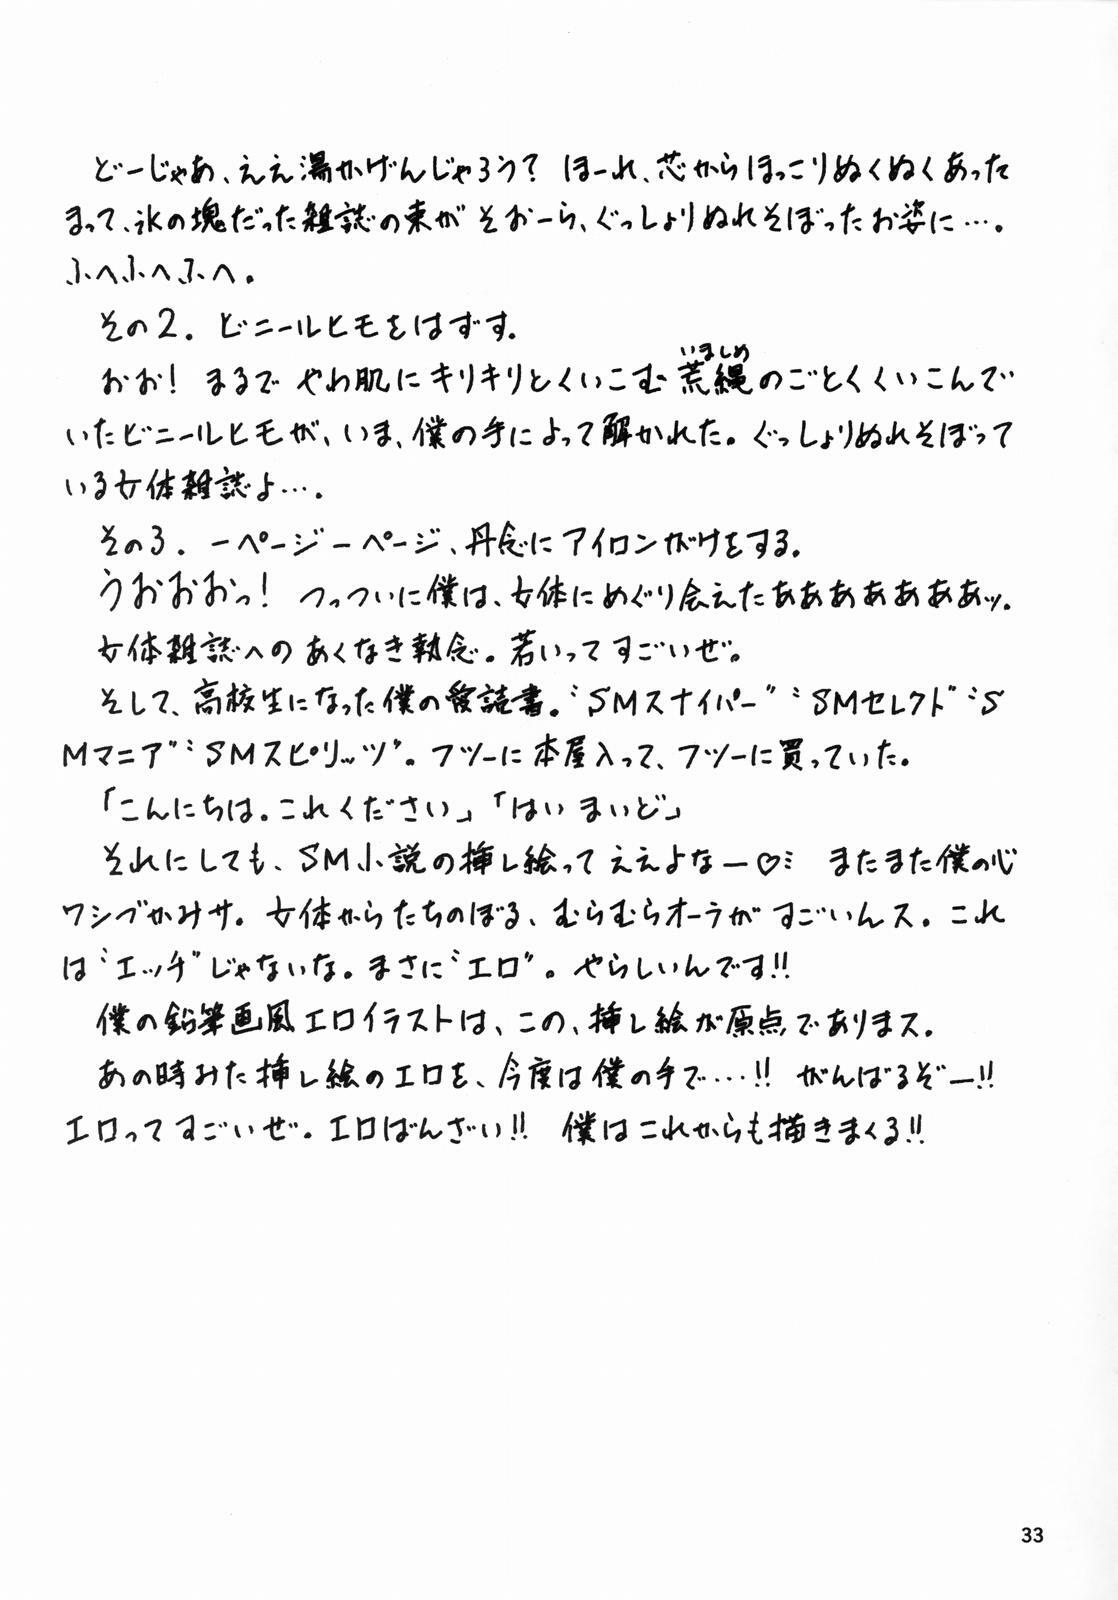 どーじゃあ、ええ湯かげんじゃろう？ ほーれ、芯からほっこりぬくぬくあった
まって、氷の塊だった雑誌の束が そおーら、ぐっしょりぬれそぼったお姿に…。
ふへふへふへ。
その2. ビニールヒモをはずす.
おお！ まるで やわ肌にキリキリとくいこむ 荒縄のごとくくいこんで
いましめ
いたビニールヒモが、いま、僕の手によって解かれた。ぐっしょりぬれそぼって
いる女体雑誌よ….
その3. 一ページ一ページ、丹念にアイロンがけをする.
うおおおっ！ つっついに僕は、女体にめぐり会えたああああああああッ.
女体雑誌へのあくなき執念。若いってすごいぜ。
そして、高校生になった僕の愛読書。〝SMスナイパー〟〝SMセレクト〟〝S
Mマニア〟〝SMスピリッツ〟。フツーに本屋入って、フツーに買っていた。
「こんにちは。これください」「はい まいど」
それにしても、SM小説の挿し絵って ええよなー♡ またまた僕の心
ワシづかみサ。女体からたちのぼる、むらむらオーラがすごいんス。これ
は〝エッチ〟じゃないな。まさに〝エロ〟。やらしいんです!!
僕の鉛筆画風エロイラストは、この、挿し絵が原点でありまス.
あの時みた挿し絵のエロを、今度は僕の手で…!! がんばるぞー!!
エロってすごいぜ。エロばんざい!! 僕はこれからも描きまくる!!
33